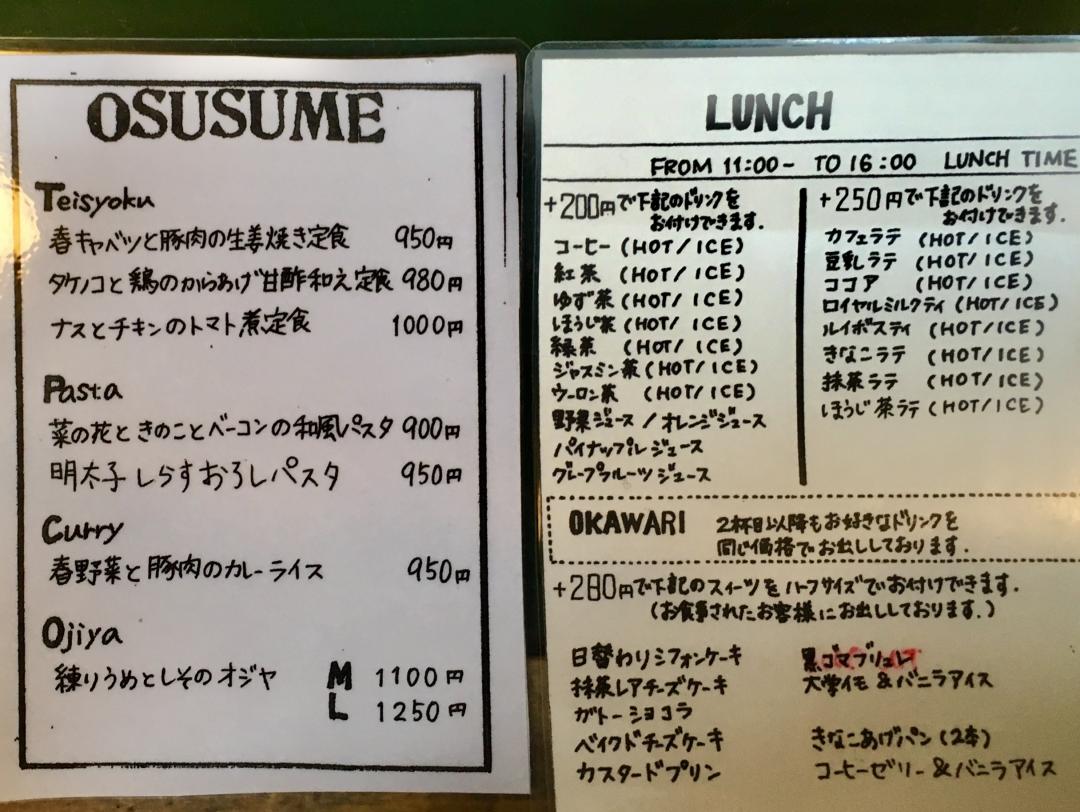 OSUSUME
Teisyoku
春キャベツと豚肉の生姜焼き定食 950円
タケノコと鶏のからあげ甘酢和え定食 980円
ナスとチキンのトマト煮定食 1000円
Pasta
菜の花ときのことベーコンの和風パスタ 900円
明太子しらすおろしパスタ 950円
Curry
春野菜と豚肉のカレーライス 950円
Ojiya
練りうめとしそのオジヤ M 1100円
L 1250円
LUNCH
FROM 11:00- TO 16:00 LUNCH TIME
+200円で下記のドリンクを
お付けできます.
コーヒー (HOT/ICE)
紅茶 (HOT/ICE)
ゆず茶 (HOT/ICE)
ほうじ茶 (HOT/ICE)
緑茶 (HOT/ICE)
ジャスミン茶 (HOT/ICE)
ウーロン茶 (HOT/ICE)
野菜ジュース / オレンジジュース
パイナップルジュース
グレープフルーツジュース
+250円で下記のドリンクを
お付けできます.
カフェラテ (HOT/ICE)
豆乳ラテ (HOT/ICE)
ココア (HOT/ICE)
ロイヤルミルクティ (HOT/ICE)
ルイボスティ (HOT/ICE)
きなこラテ (HOT/ICE)
抹茶ラテ (HOT/ICE)
ほうじ茶ラテ (HOT/ICE)
OKAWARI 2杯目以降もお好きなドリンクを
同じ価格でお出ししております.
+280円で下記のスイーツをハーフサイズでお付けできます.
(お食事されたお客様にお出ししております.)
日替わりシフォンケーキ
抹茶レアチーズケーキ
ガトーショコラ
ベイクドチーズケーキ
カスタードプリン
黒ゴマブリュレ
大学イモ&バニラアイス
きなこあげパン(2本)
コーヒーゼリー&バニラアイス